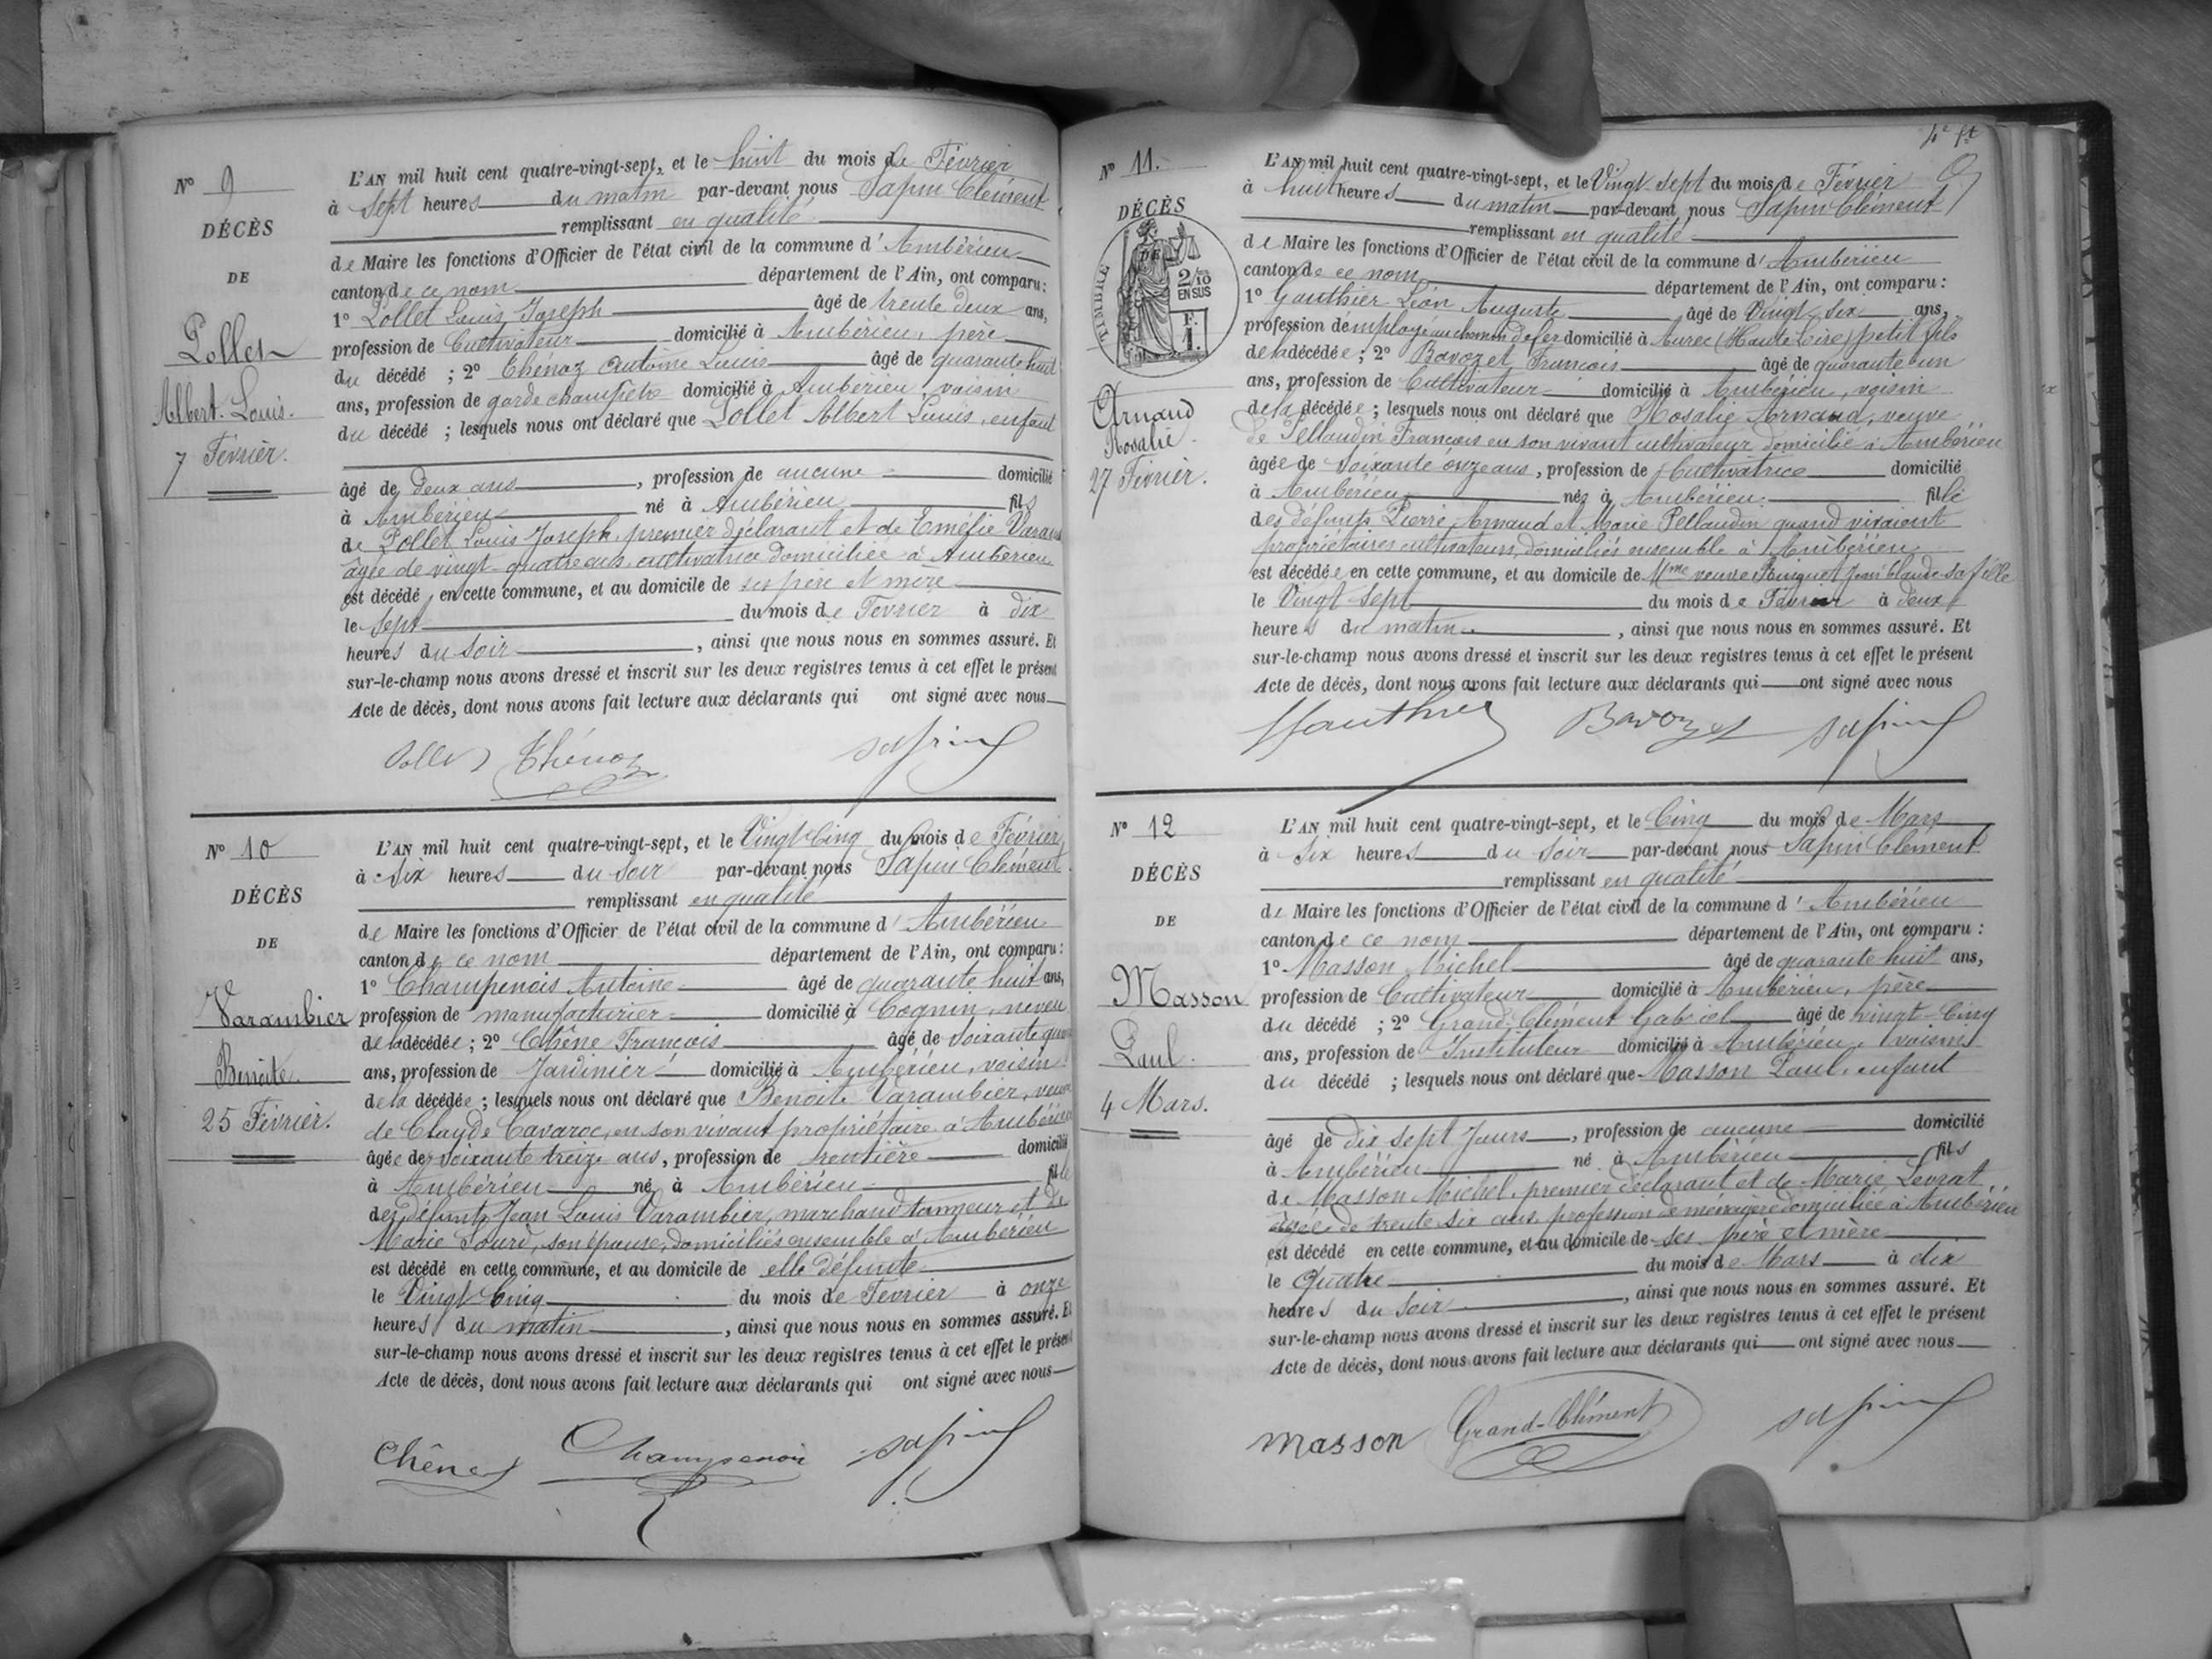 N° 9
DÉCÈS
DE
Pollet
Albert Louis.
7 Février.
L'AN mil huit cent quatre-vingt-sept, et le huit du mois de Février
à Sept heures du matin par-devant nous Sapin Clément
remplissant en qualité
de Maire les fonctions d'Officier de l'état civil de la commune d'Ambérieu
canton de ce nom département de l'Ain, ont comparu :
1° Pollet Louis Joseph âgé de trente deux ans,
profession de Cultivateur domicilié à Ambérieu, père
du décédé ; 2° Thénoz Antoine Louis âgé de quarante huit
ans, profession de garde champêtre domicilié à Ambérieu voisin
du décédé ; lesquels nous ont déclaré que Pollet Albert Louis, enfant
âgé de deux ans, profession de aucune domicilié
à Ambérieu né à Ambérieu fils
de Pollet Louis Joseph, premier déclarant et de Emélie
âgée de vingt-quatre ans, cultivatrice domiciliée à Ambérieu
est décédé en cette commune, et au domicile de ses père et mère
le sept du mois de Février à dix
heures du soir, ainsi que nous nous en sommes assuré. Et
sur-le-champ nous avons dressé et inscrit sur les deux registres tenus à cet effet le présent
Acte de décès, dont nous avons fait lecture aux déclarants qui ont signé avec nous
Pollet Thénoz Sapin
N° 10
DÉCÈS
DE
Varambier
Benoite.
25 Février.
L'AN mil huit cent quatre-vingt-sept, et le Vingt-Cinq du mois de Février
à Six heures du soir par-devant nous Sapin Clément
remplissant en qualité
de Maire les fonctions d'Officier de l'état civil de la commune d'Ambérieu
canton de ce nom département de l'Ain, ont comparu :
1° Champenois Antoine âgé de quarante huit ans,
profession de manufacturier domicilié à Cognin, neveu
de la décédée ; 2° Chêne François âgé de soixante
ans, profession de Jardinier domicilié à Ambérieu, voisin
de la décédée ; lesquels nous ont déclaré que Benoite Varambier, veuve
de Claude Cavaroc, en son vivant propriétaire à Ambérieu
âgée de soixante treize ans, profession de rentière domicilié
à Ambérieu née à Ambérieu fille
des défunts Jean Louis Varambier, marchand tanneur et de
Marie Sourd, son épouse, domiciliés ensemble à Ambérieu
est décédé en cette commune, et au domicile de elle défunte
le Vingt-Cinq du mois de Février à onze
heures du matin, ainsi que nous nous en sommes assuré. Et
sur-le-champ nous avons dressé et inscrit sur les deux registres tenus à cet effet le présent
Acte de décès, dont nous avons fait lecture aux déclarants qui ont signé avec nous
Chêne Champenois Sapin
N° 11.
DÉCÈS
DE
TIMBRE
2/10
EN SUS
Arnaud
Rosalie.
27 Février.
L'AN mil huit cent quatre-vingt-sept, et le Vingt-Sept du mois de Février
à huit heures du matin par-devant nous Sapin Clément
remplissant en qualité
de Maire les fonctions d'Officier de l'état civil de la commune d'Ambérieu
canton de ce nom département de l'Ain, ont comparu :
1° Gauthier Léon Auguste âgé de Vingt-six ans,
profession d'employé au chemin de fer domicilié à Aurec (Haute Loire) petit fils
de la décédée ; 2° Bavozet François âgé de quarante un
ans, profession de Cultivateur domicilié à Ambérieu, voisin
de la décédée ; lesquels nous ont déclaré que Rosalie Arnaud, veuve
de Pellaudin François en son vivant cultivateur domicilié à Ambérieu
âgée de Soixante onze ans, profession de Cultivatrice domicilié
à Ambérieu née à Ambérieu fille
des défunts Pierre Arnaud et Marie Pellaudin quand vivaient
propriétaires cultivateurs, domiciliés ensemble à Ambérieu
est décédée en cette commune, et au domicile de Mme veuve Jean Claude sa fille
le Vingt Sept du mois de Février à deux
heures du matin, ainsi que nous nous en sommes assuré. Et
sur-le-champ nous avons dressé et inscrit sur les deux registres tenus à cet effet le présent
Acte de décès, dont nous avons fait lecture aux déclarants qui ont signé avec nous
Gauthier Bavozet Sapin
N° 12
DÉCÈS
DE
Masson
Paul.
4 Mars.
L'AN mil huit cent quatre-vingt-sept, et le Cinq du mois de Mars
à Six heures du Soir par-devant nous Sapin Clément
remplissant en qualité
de Maire les fonctions d'Officier de l'état civil de la commune d'Ambérieu
canton de ce nom département de l'Ain, ont comparu :
1° Masson Michel âgé de quarante huit ans,
profession de Cultivateur domicilié à Ambérieu, père
du décédé ; 2° Grand-Clément Gabriel âgé de vingt-Cinq
ans, profession de Instituteur domicilié à Ambérieu, voisin
du décédé ; lesquels nous ont déclaré que Masson Paul, enfant
âgé de dix Sept Jours, profession de aucune domicilié
à Ambérieu né à Ambérieu fils
de Masson Michel, premier déclarant et de Marie Levrat
âgée de trente six ans, profession de ménagère domiciliée à Ambérieu
est décédé en cette commune, et au domicile de ses père et mère
le Quatre du mois de Mars à dix
heures du Soir, ainsi que nous nous en sommes assuré. Et
sur-le-champ nous avons dressé et inscrit sur les deux registres tenus à cet effet le présent
Acte de décès, dont nous avons fait lecture aux déclarants qui ont signé avec nous
Masson Grand-Clément Sapin